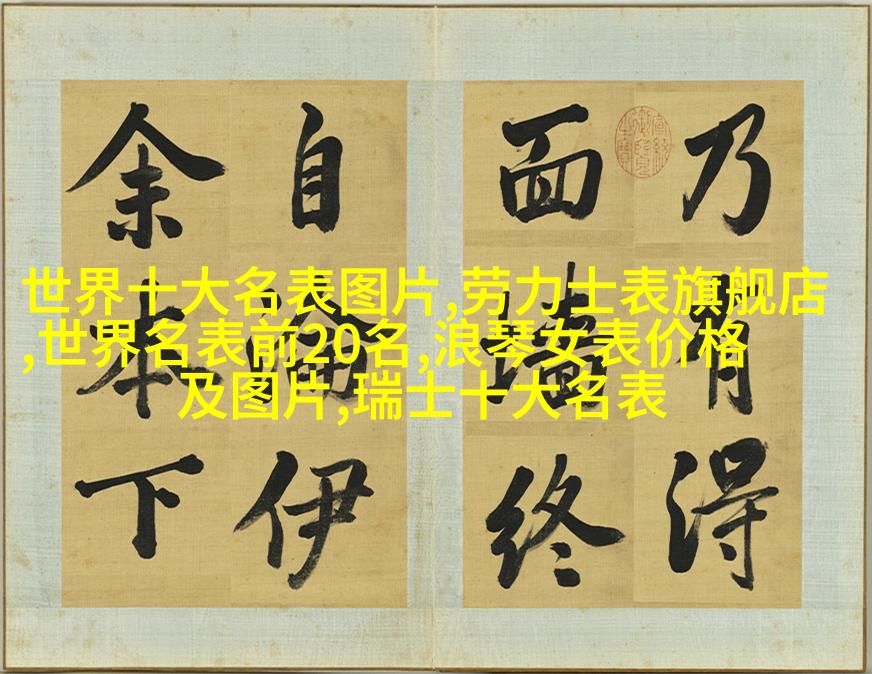 世界十大名表图片,劳力士表旗舰店
,世界名表前20名,浪琴女表价格
及图片,瑞士十大名表
乃有得
面墻終
自伊
余本下